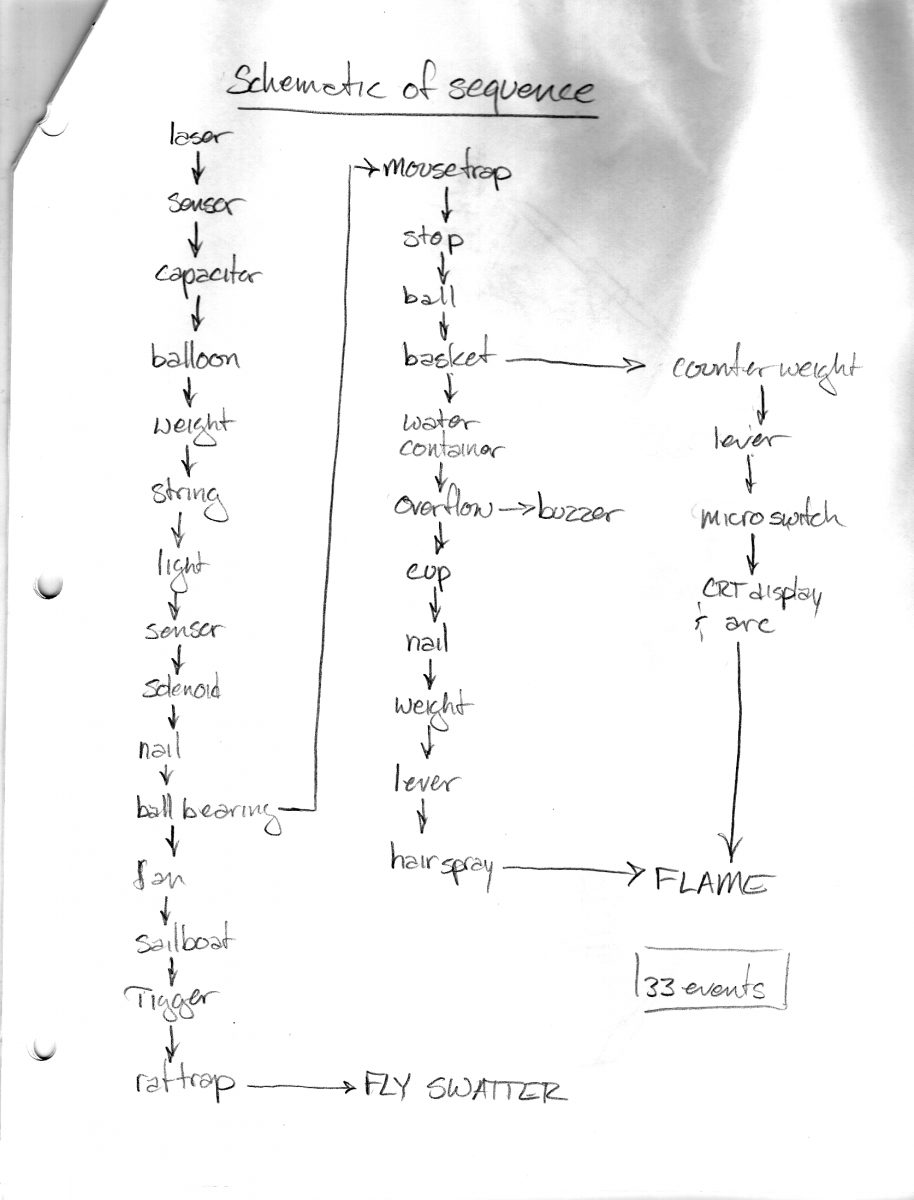 Schematic of sequence
laser
sensor
capacitor
balloon
weight
string
light
sensor
solenoid
nail
ball bearing
fan
sailboat
Tigger
rat trap → FLY SWATTER
→ mousetrap
stop
ball
basket
water
container
overflow → buzzer
cup
nail
weight
lever
hair spray
counter weight
lever
micro switch
CRT display
& arc
FLAME
33 events